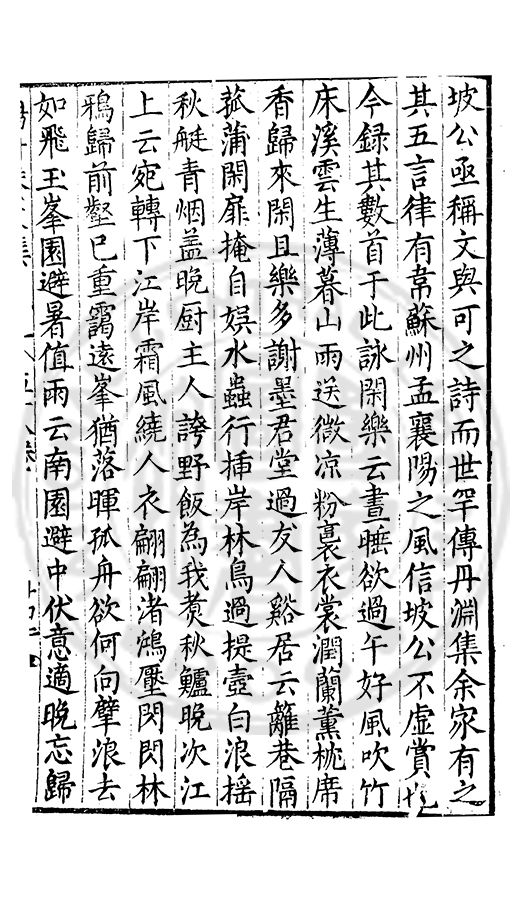 坡公亟稱文與可之詩而世罕傳丹淵集余家有之
其五言律有韋蘇州孟襄陽之風信坡公不虛賞也
今録其數首于此詠閑樂云晝睡欲過午好風吹竹
床溪雲生薄暮山雨送微凉粉裛衣裳潤蘭薰枕席
香歸來閑且樂多謝墨君堂過友人谿居云籬巷隔
菰蒲閑扉掩自娯水蟲行插岸林鳥過提壺白浪揺
秋艇青烟盖晚厨主人誇野飯為我煑秋鱸晚次江
上云宛轉下江岸霜風繞人衣翩翩渚鴻壓閃閃林
鴉歸前壑已重靄遠峯猶落暉孤舟欲何向擘浪去
如飛玉峯園避暑值雨云南園避中伏意適晚忘歸